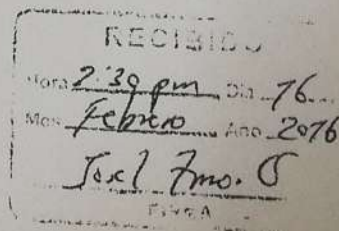 RECIBIDO
Hora 2:30 pm Dia 16
Mes Febrero Año 2016
FIRMA